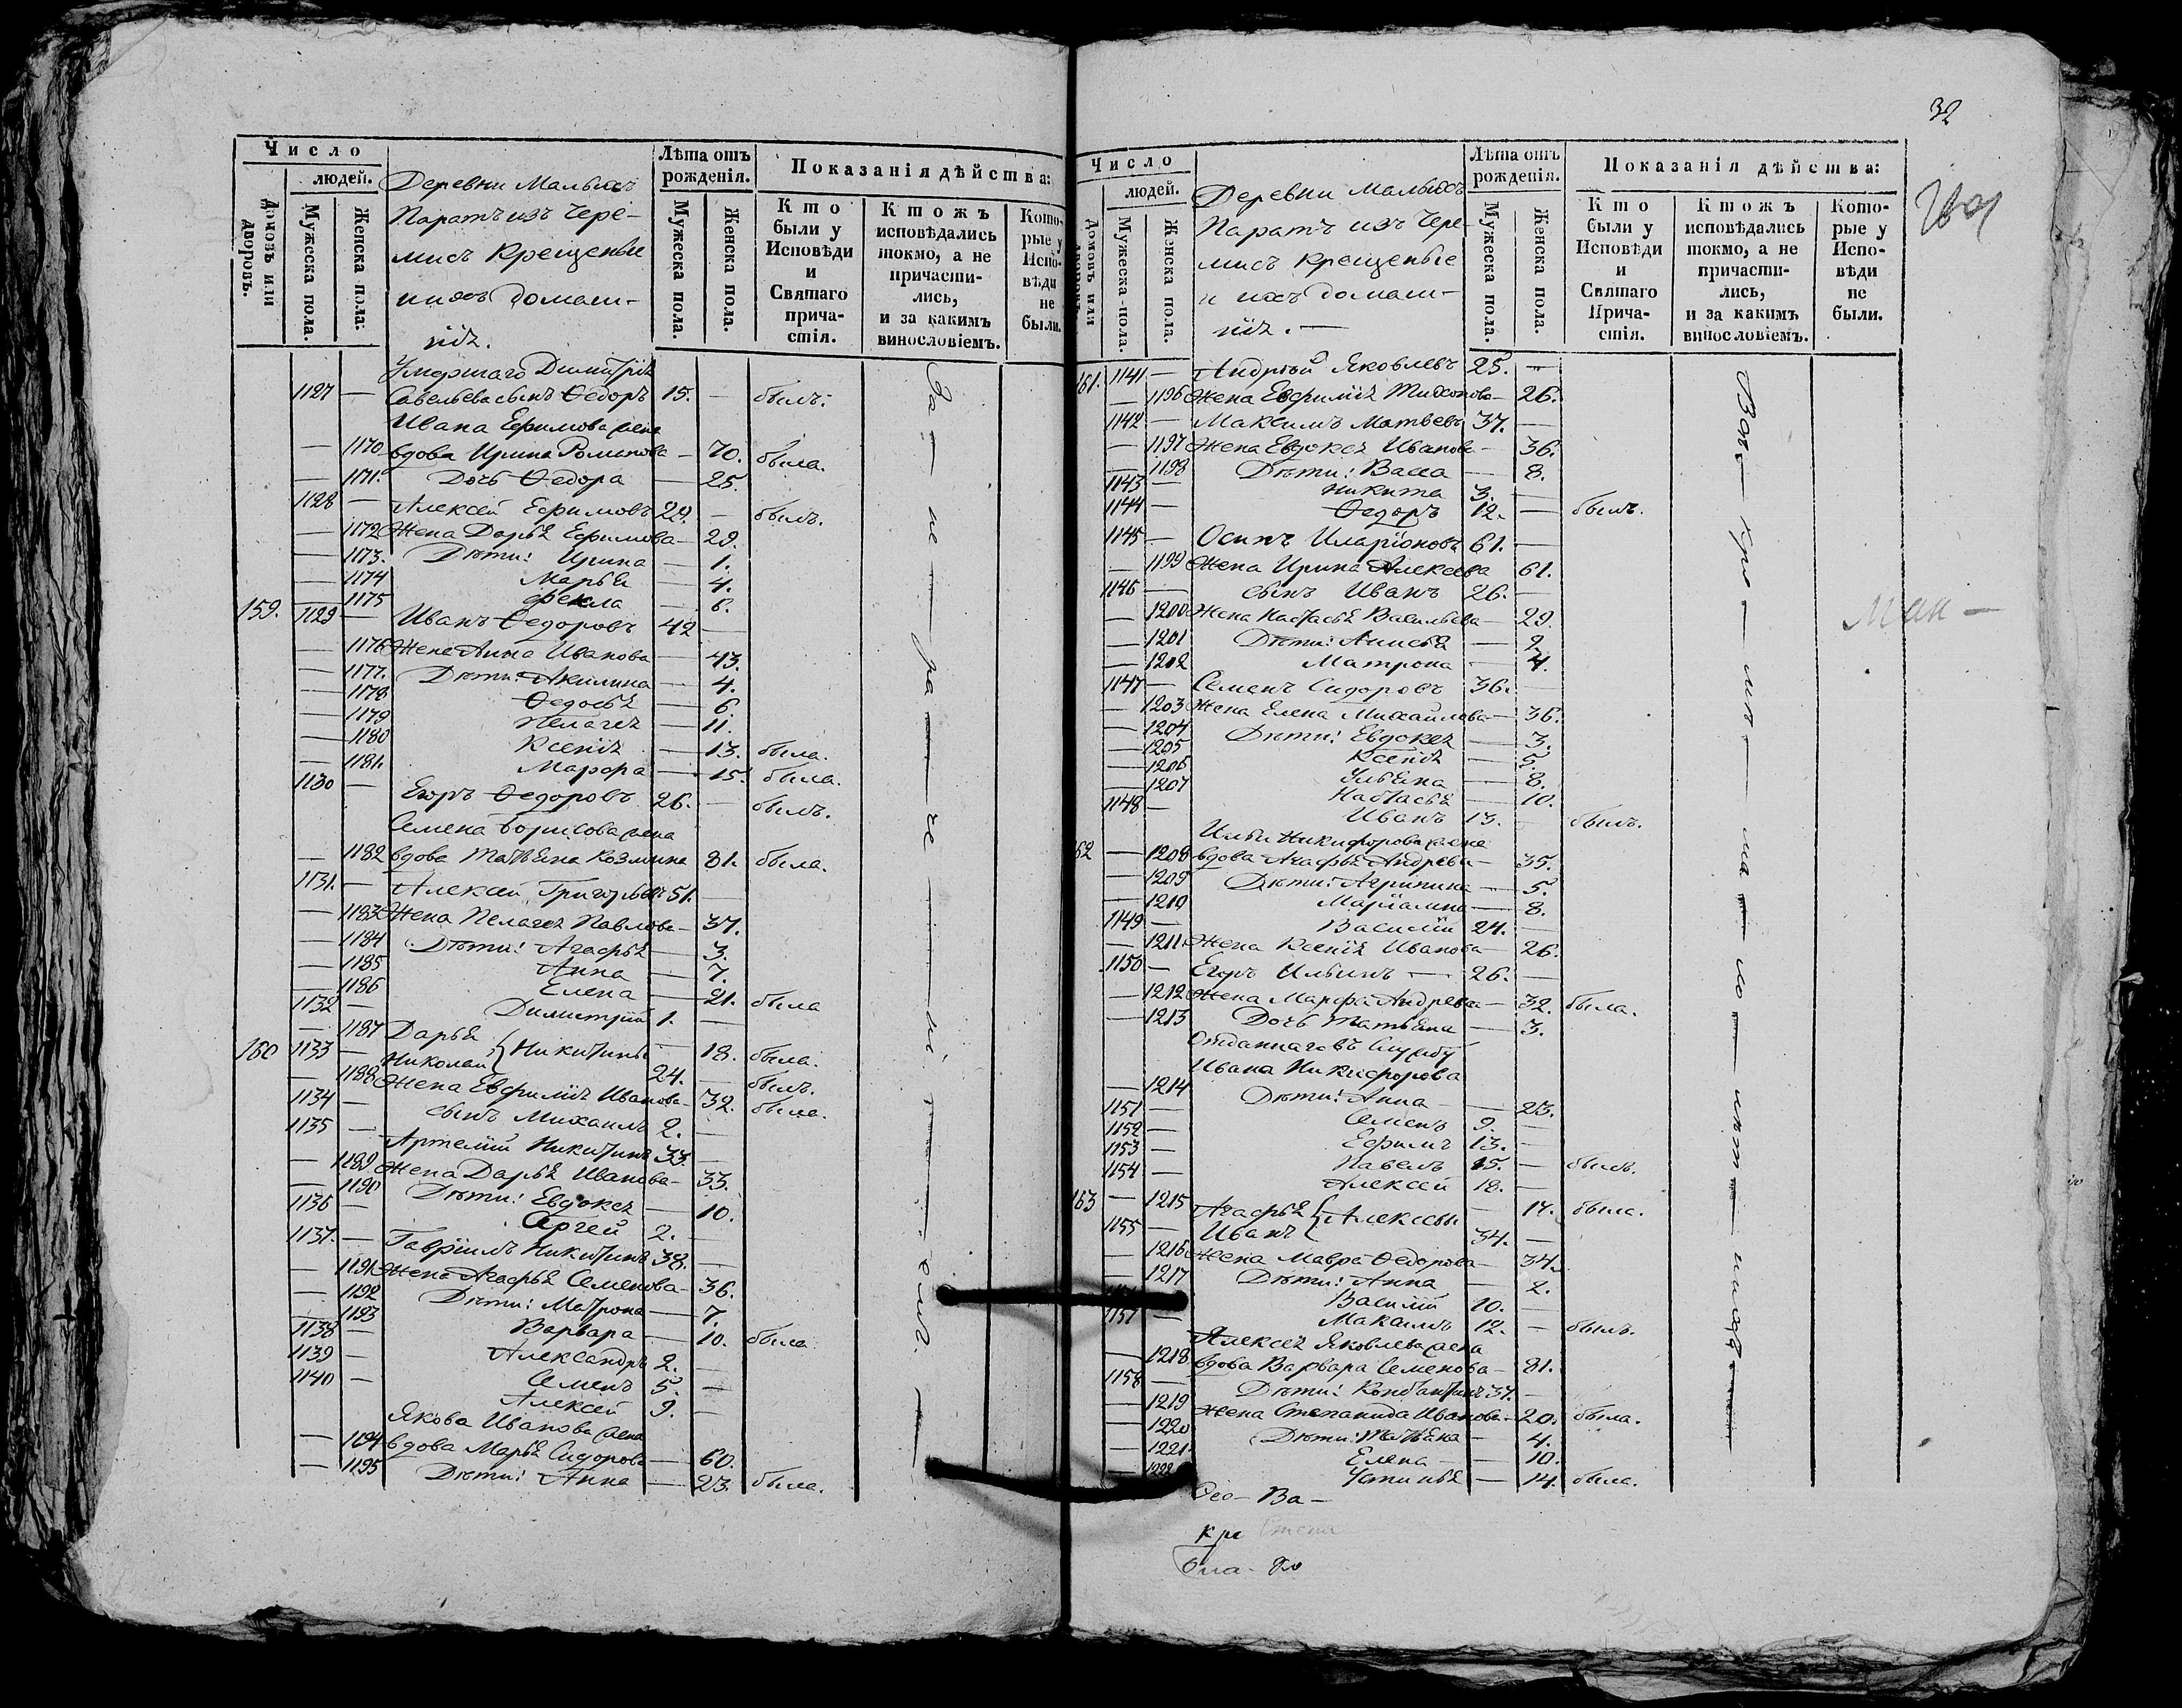 32
Число
людей.
Домовъ или дворовъ.
Мужеска пола.
Женска пола:
Деревни Малыхъ
Паратъ изъ Чере-
мисъ Крещеные
и ихъ домаш-
нія.
Лѣта отъ рожденія.
Мужеска пола.
Женска пола.
Показанія дѣйства:
Кто были у Исповѣди и Святаго прича-стія.
Ктожъ исповѣдались токмо, а не причасти-лись, и за какимъ винословіемъ.
Кото-рые у Испо-вѣди не были.
Умершаго Димитрія
1127 — Савельева сынъ Ѳедоръ 15. — былъ.
Ивана Ефимова жена
— 1170 вдова Ирина Романова — 70. была.
— 1171. Дочь Ѳедора — 25.
1128 — Алексей Ефимовъ 29. — былъ.
— 1172 Жена Дарья Ефимова — 29.
— 1173. Дѣти: Ирина — 1.
— 1174 Марья — 4.
— 1175 Фекла — 6.
159. 1129 — Иванъ Ѳедоровъ 42 —
— 1176 Жена Анна Иванова — 43.
— 1177. Дѣти: Акилина — 4.
— 1178 Ѳедосья — 6.
— 1179 Пелагея — 11.
— 1180 Ксенія — 13. была.
— 1181. Марфа — 15. была.
1130 — Егоръ Ѳедоровъ 26. — былъ.
Семена Борисова жена
— 1182 вдова Татьяна Козмина 81. была.
1131. — Алексей Григорьевъ 51. —
— 1183 Жена Пелагея Павлова — 37.
— 1184 Дѣти: Агафья — 3.
— 1185 Анна — 7.
— 1186 Елена — 21. была
1132 — Димитрій 1. —
— 1187 Дарья — 18. была.
160 1133 — Николай } Никитины 24. — былъ.
— 1188 Жена Евфимія Иванова — 32. была.
1134 — сынъ Михаилъ 2. —
1135 — Артемій Никитинъ 33. —
— 1189 Жена Дарья Иванова — 33.
— 1190 Дѣти: Евдокея — 10.
1136 — Сергей 2. —
1137. — Гавріилъ Никитинъ 38. —
— 1191 Жена Агафья Семенова — 36.
— 1192 Дѣти: Матрона — 7.
— 1193 Варвара — 10. была.
1138 — Александръ 2. —
1139 — Семенъ 5. —
1140 — Алексей 9. —
Якова Иванова жена
— 1194 вдова Марья Сидорова — 60.
— 1195 Дѣти: Анна — 23. была.
За — не — ра — че — ні — емъ. —
Число
людей.
Домовъ или
Мужеска пола.
Женска пола.
Деревни Малыхъ
Паратъ изъ Чере-
мисъ Крещеные
и ихъ домаш-
нія. —
Лѣта отъ рожденія.
Мужеска пола.
Женска пола.
Показанія дѣйства:
Кто были у Исповѣди и Святаго Прича-стія.
Ктожъ исповѣдались токмо, а не причасти-лись, и за какимъ винословіемъ.
Кото-рые у Испо-вѣди не были.
161. 1141 — Андрей Яковлевъ 25. —
— 1196 Жена Евфимія Тихонова — 26.
1142 — Максимъ Матвеевъ 37. —
— 1197 Жена Евдокея Иванова — 36.
— 1198 Дѣти: Васса — 8.
1143 — Никита 3. —
1144 — Ѳедоръ 12. — былъ.
1145 — Осипъ Иларіоновъ 61. —
— 1199 Жена Ирина Алексеева 61.
1146 — сынъ Иванъ 26. —
— 1200 Жена Настасья Васильева — 29.
— 1201 Дѣти: Анисья — 2
— 1202 Матрона — 4.
1147 — Семенъ Сидоровъ 36. —
— 1203 Жена Елена Михаилова — 36.
— 1204 Дѣти: Евдокея — 3.
— 1205 Ксенія — 5.
— 1206 Ульяна — 8.
— 1207 Настасья — 10.
1148 — Иванъ 13. — былъ.
Ильи Никифорова жена
62 — 1208 вдова Агафья Андреева — 35.
— 1209 Дѣти: Агрипина — 5.
— 1210 Маріамна — 8.
1149 — Василій 24. —
— 1211 Жена Ксенія Иванова — 26.
1150 — Егоръ Ильинъ — 26. —
— 1212 Жена Марфа Андреева — 32. была.
— 1213 Дочь Татьяна — 3.
Отданнаго въ Службу
Ивана Никифорова
— 1214 Дѣти: Анна — 23.
1151 — Семенъ 9. —
1152 — Ефимъ 13. —
1153 — Павелъ 15. — былъ.
1154 — Алексей 18. —
163 — 1215 Агафья — 17. была.
1155 — Иванъ } Алексеевы 34. —
— 1216 Жена Мавра Ѳедорова — 34.
— 1217 Дѣти: Анна — 2.
Василій 10. —
1157 — Максимъ 12. — былъ.
Алексея Яковлева жена
— 1218 вдова Варвара Семенова — 81.
1158 — Дѣти: Константинъ 37. —
— 1219 Жена Степанида Иванова — 20. была.
— 1220 Дѣти: Татьяна — 4.
— 1221 Елена — 10.
— 1222 Устинья — 14. была.
Ѳео — Ва —